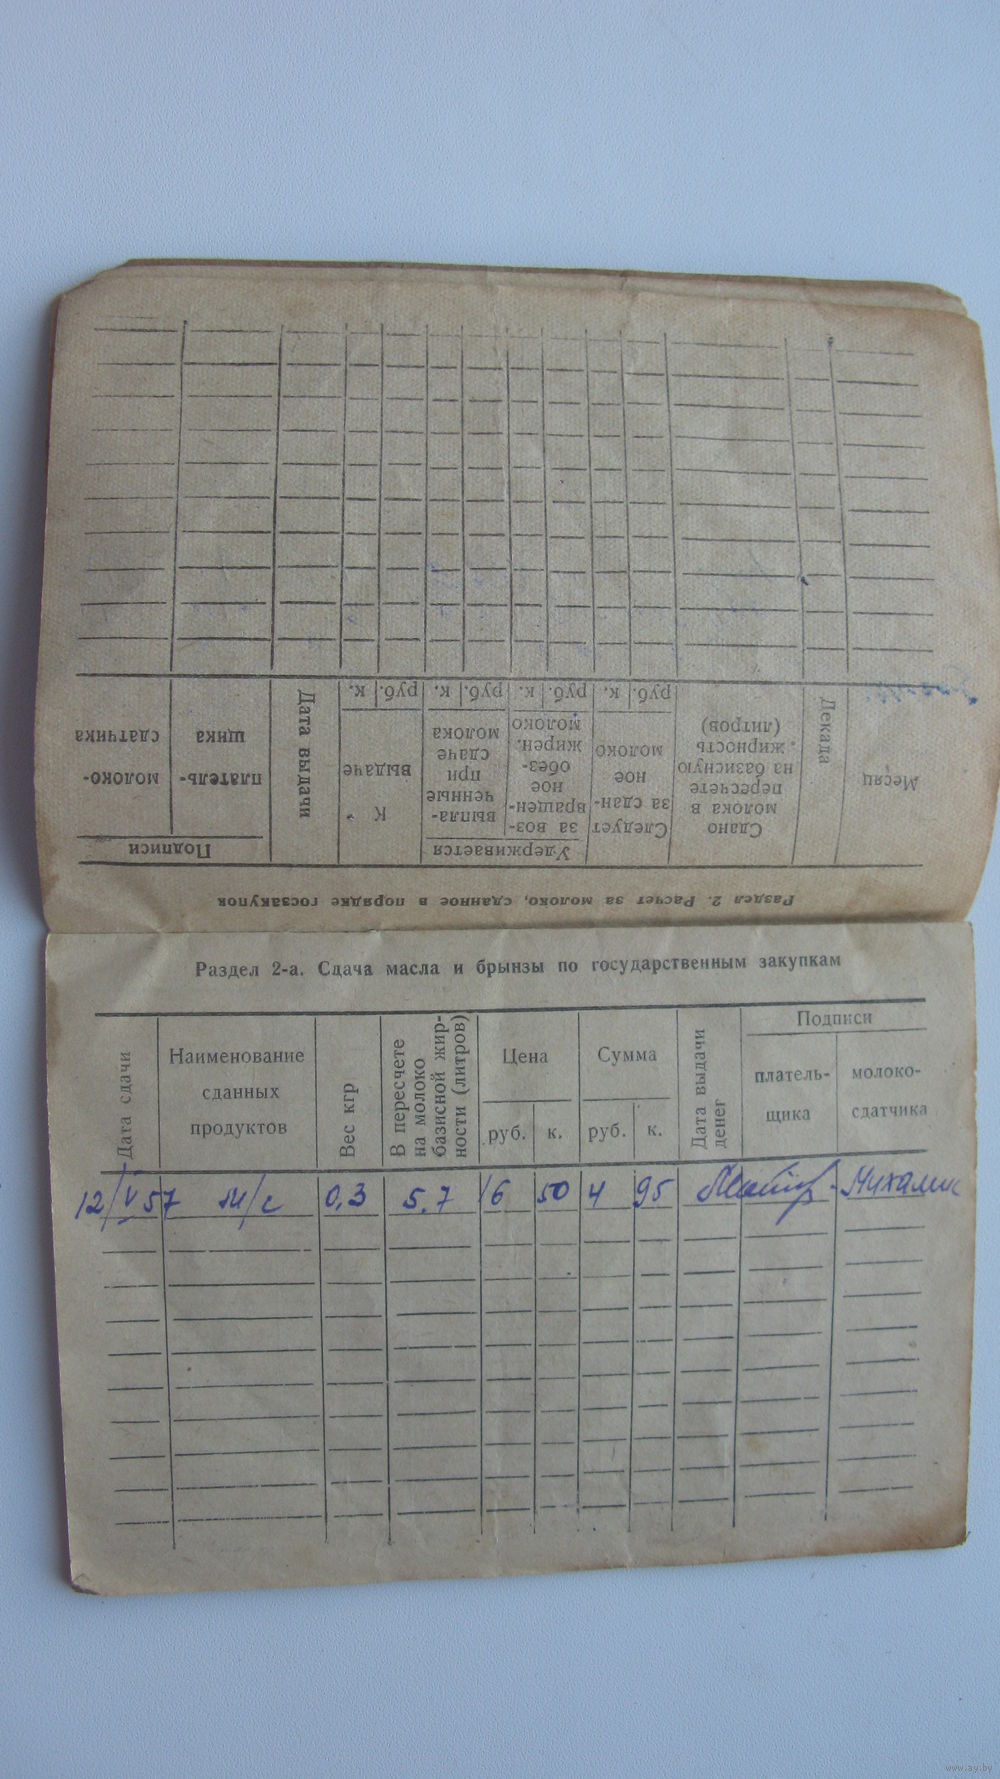 Раздел 2. Расчет за молоко, сданное в порядке госзакупок
Месяц
Декада
Сдано
молока в
пересчете
на базисную
жирность
(литров)
Следует
за сдан-
ное
молоко
руб. к.
Удерживается
за воз-
вращен-
ное
обез-
жирен.
молоко
руб. к.
выпла-
ченные
при
сдаче
молока
руб. к.
К
выдаче
руб. к.
Дата выдачи
Подписи
платель-
щика
молоко-
сдатчика
Раздел 2-а. Сдача масла и брынзы по государственным закупкам
Дата сдачи
Наименование
сданных
продуктов
Вес кгр
В пересчете
на молоко
базисной жир-
ности (литров)
Цена
руб. к.
Сумма
руб. к.
Дата выдачи
денег
Подписи
платель-
щика
молоко-
сдатчика
12/V 57 м/с 0,3 5,7 16 50 4 95
www.ay.by